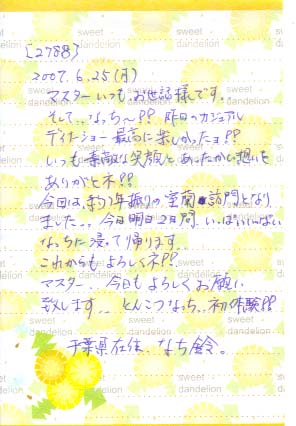 [2788]
2007.6.25(月)
マスターいつもお世話様です。
そして...なっち〜!! 昨日のカジュアル
ディナーショー最高に楽しかったョ!!
いつも素敵な笑顔と あったかい想いを
ありがとネ!!
今回は、約1年振りの室蘭訪問となり
ました... 今日明日2日間 いっぱいいっぱい
なっちに浸って帰ります...
これからもよろしくネ!!
マスター、今日もよろしくお願い
致します... とんこつなっち、初体験!!
千葉県在住 なち鈴。
sweet
dandelion
sweet
dandelion
sweet
dandelion
sweet
dandelion